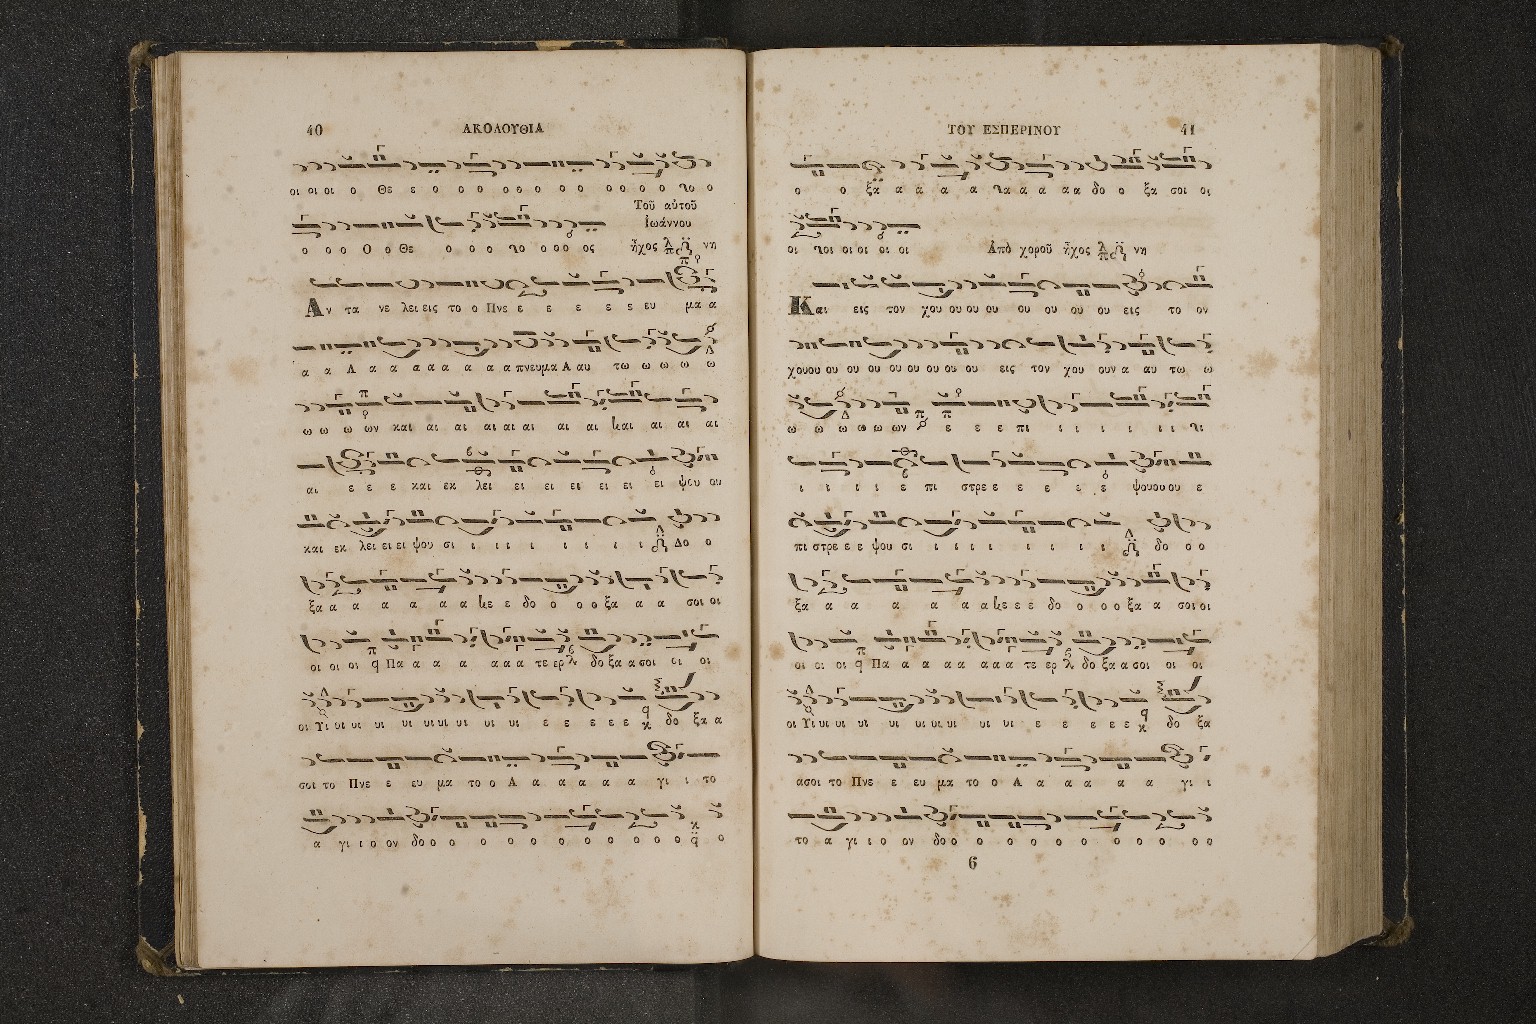 40 ΑΚΟΛΟΥΘΙΑ
οι οι οι ο Θε ε ο ο ο ο ο ο ο ο ο ο ο ο ο ο
Τοῦ αὐτοῦ
Ἰωάννου
ο ο ο Ο ο Θε ο ο ο ο ο ο ο ος ἦχος νη
Αν τα νε λει εις το ο Πνε ε ε ε ε ε ε ευ μα α
α α Α α α α α α α α α πνευμα Α αυ τω ω ω ω ω
ω ω ω ων και αι αι αι αι αι αι αι και αι αι αι
αι ε ε ε και εκ λει ει ει ει ει ει ει ψου ου
και εκ λει ει ει ψου σι ι ι ι ι ι ι ι Δο ο
ξα α α α α α α α κε ε δο ο ο ο ξα α α σοι οι
οι οι οι Πα α α α α α α τε ερ δο ξα α σοι οι οι
οι Υι υι υι υι υι υι υι υι υι υι ε ε ε ε ε δο ξα α
σοι το Πνε ε ευ μα το ο Α α α α α α γι ι το
α γι ι ο ον δο ο ο ο ο ο ο ο ο ο ο ο ο ο
ΤΟΥ ΕΣΠΕΡΙΝΟΥ 41
ο ο ξα α α α α α α α α α δο ο ξα σοι οι
οι οι οι οι οι οι Ἀπὸ χοροῦ ἦχος νη
Και εις τον χου ου ου ου ου ου ου ου εις το ον
χουου ου ου ου ου ου ου ου ου εις τον χου ουν α αυ τω ω
ω ω ω ω ω ων ε ε ε πι ι ι ι ι ι ι ι
ι ι ι ι ε πι στρε ε ε ε ε ε ε ψουου ου ε
πι στρε ε ε ψου σι ι ι ι ι ι ι ι ι δο ο ο
ξα α α α α α α κε ε ε δο ο ο ο ξα α σοι οι
οι οι οι Πα α α α α α α α τε ερ δο ξα α σοι οι οι
οι Υι υι υι υι υι υι υι υι υι υι ε ε ε ε ε δο ξα
α σοι το Πνε ε ευ μα το ο Α α α α α α γι ι
το α γι ι ο ον δο ο ο ο ο ο ο ο ο ο ο ο ο
6